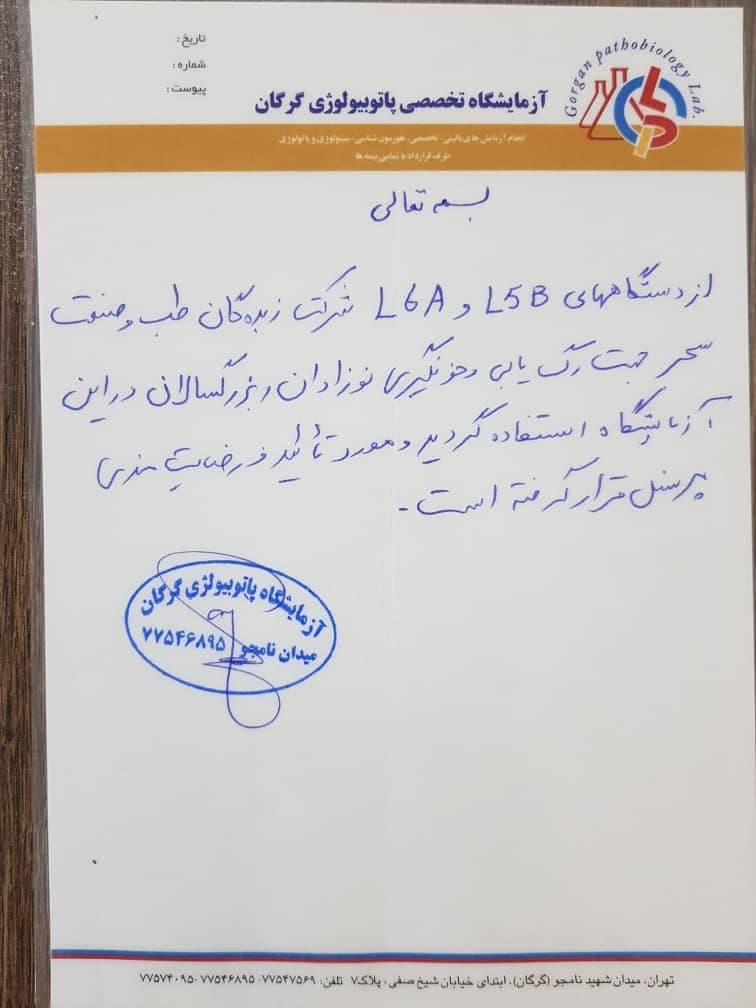 تاریخ:
شماره:
پیوست:
Gorgan pathobiology Lab.
آزمایشگاه تخصصی پاتوبیولوژی گرگان
انجام آزمایش های بالینی- تخصصی، هورمون شناسی- سیتولوژی و پاتولوژی
طرف قرارداد با تمامی بیمه ها
بسمه تعالی
از دستگاههای L5B و L6A شرکت زبدگان طب و صنعت
سحر جهت رگ یابی و خونگیری نوزادان و بزرگسالان در این
آزمایشگاه استفاده گردید و مورد تأئید و رضایت مندی
پرسنل قرار گرفته است.
آزمایشگاه پاتوبیولژی گرگان
میدان نامجو ۷۷۵۴۶۸۹۵
تهران، میدان شهید نامجو (گرگان)، ابتدای خیابان شیخ صفی، پلاک۷ تلفن: ۷۷۵۴۷۵۶۹- ۷۷۵۴۶۸۹۵-۷۷۵۷۴۰۹۵